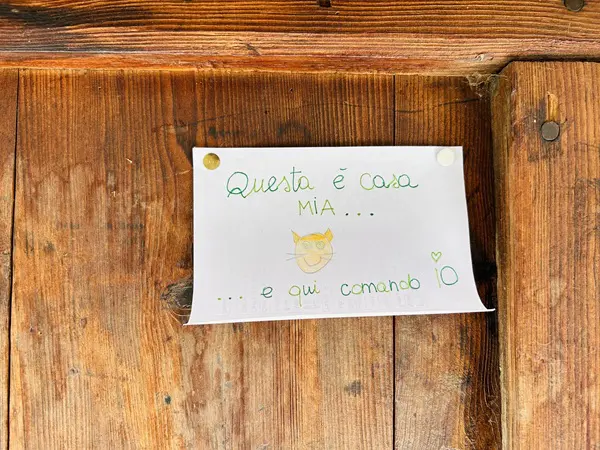 Questa é casa
MIA...
... e qui comando iO